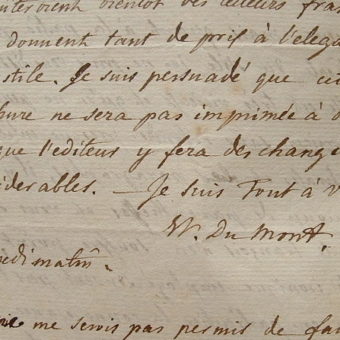 bientôt des lecteurs
donnent tant de prix à l'elega
stile. Je suis persuadé que cet
hure ne sera pas imprimée à
que l'editeur y fera des change
iderables. — Je suis Tout à v
Et. Du Mont.
edi matin
me serois pas permis de fai